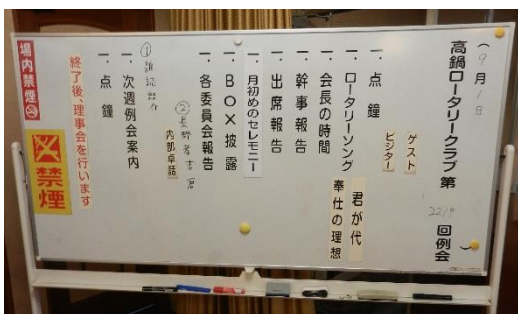 （9月1日
高鍋ロータリークラブ第
回例会
ゲスト
ビジター
一．点鐘
一．ロータリーソング
君が代
奉仕の理想
一．会長の時間
一．幹事報告
一．出席報告
一．月初めのセレモニー
一．ＢＯＸ披露
一．各委員会報告
①雑誌紹介
②
内部卓話
一．次週例会案内
一．点鐘
終了後、理事会を行います
場内禁煙
禁煙